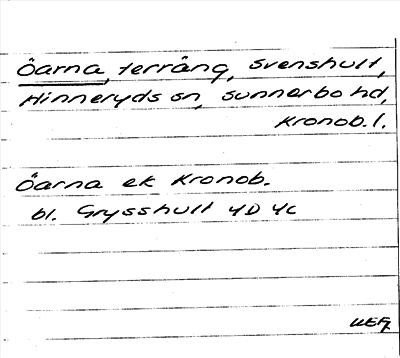 Öarna, terräng, Svenshult,
Hinneryds sn, Sunnerbo hd,
Kronob. l.
Öarna ek Kronob.
bl. Grysshult 4D 4c